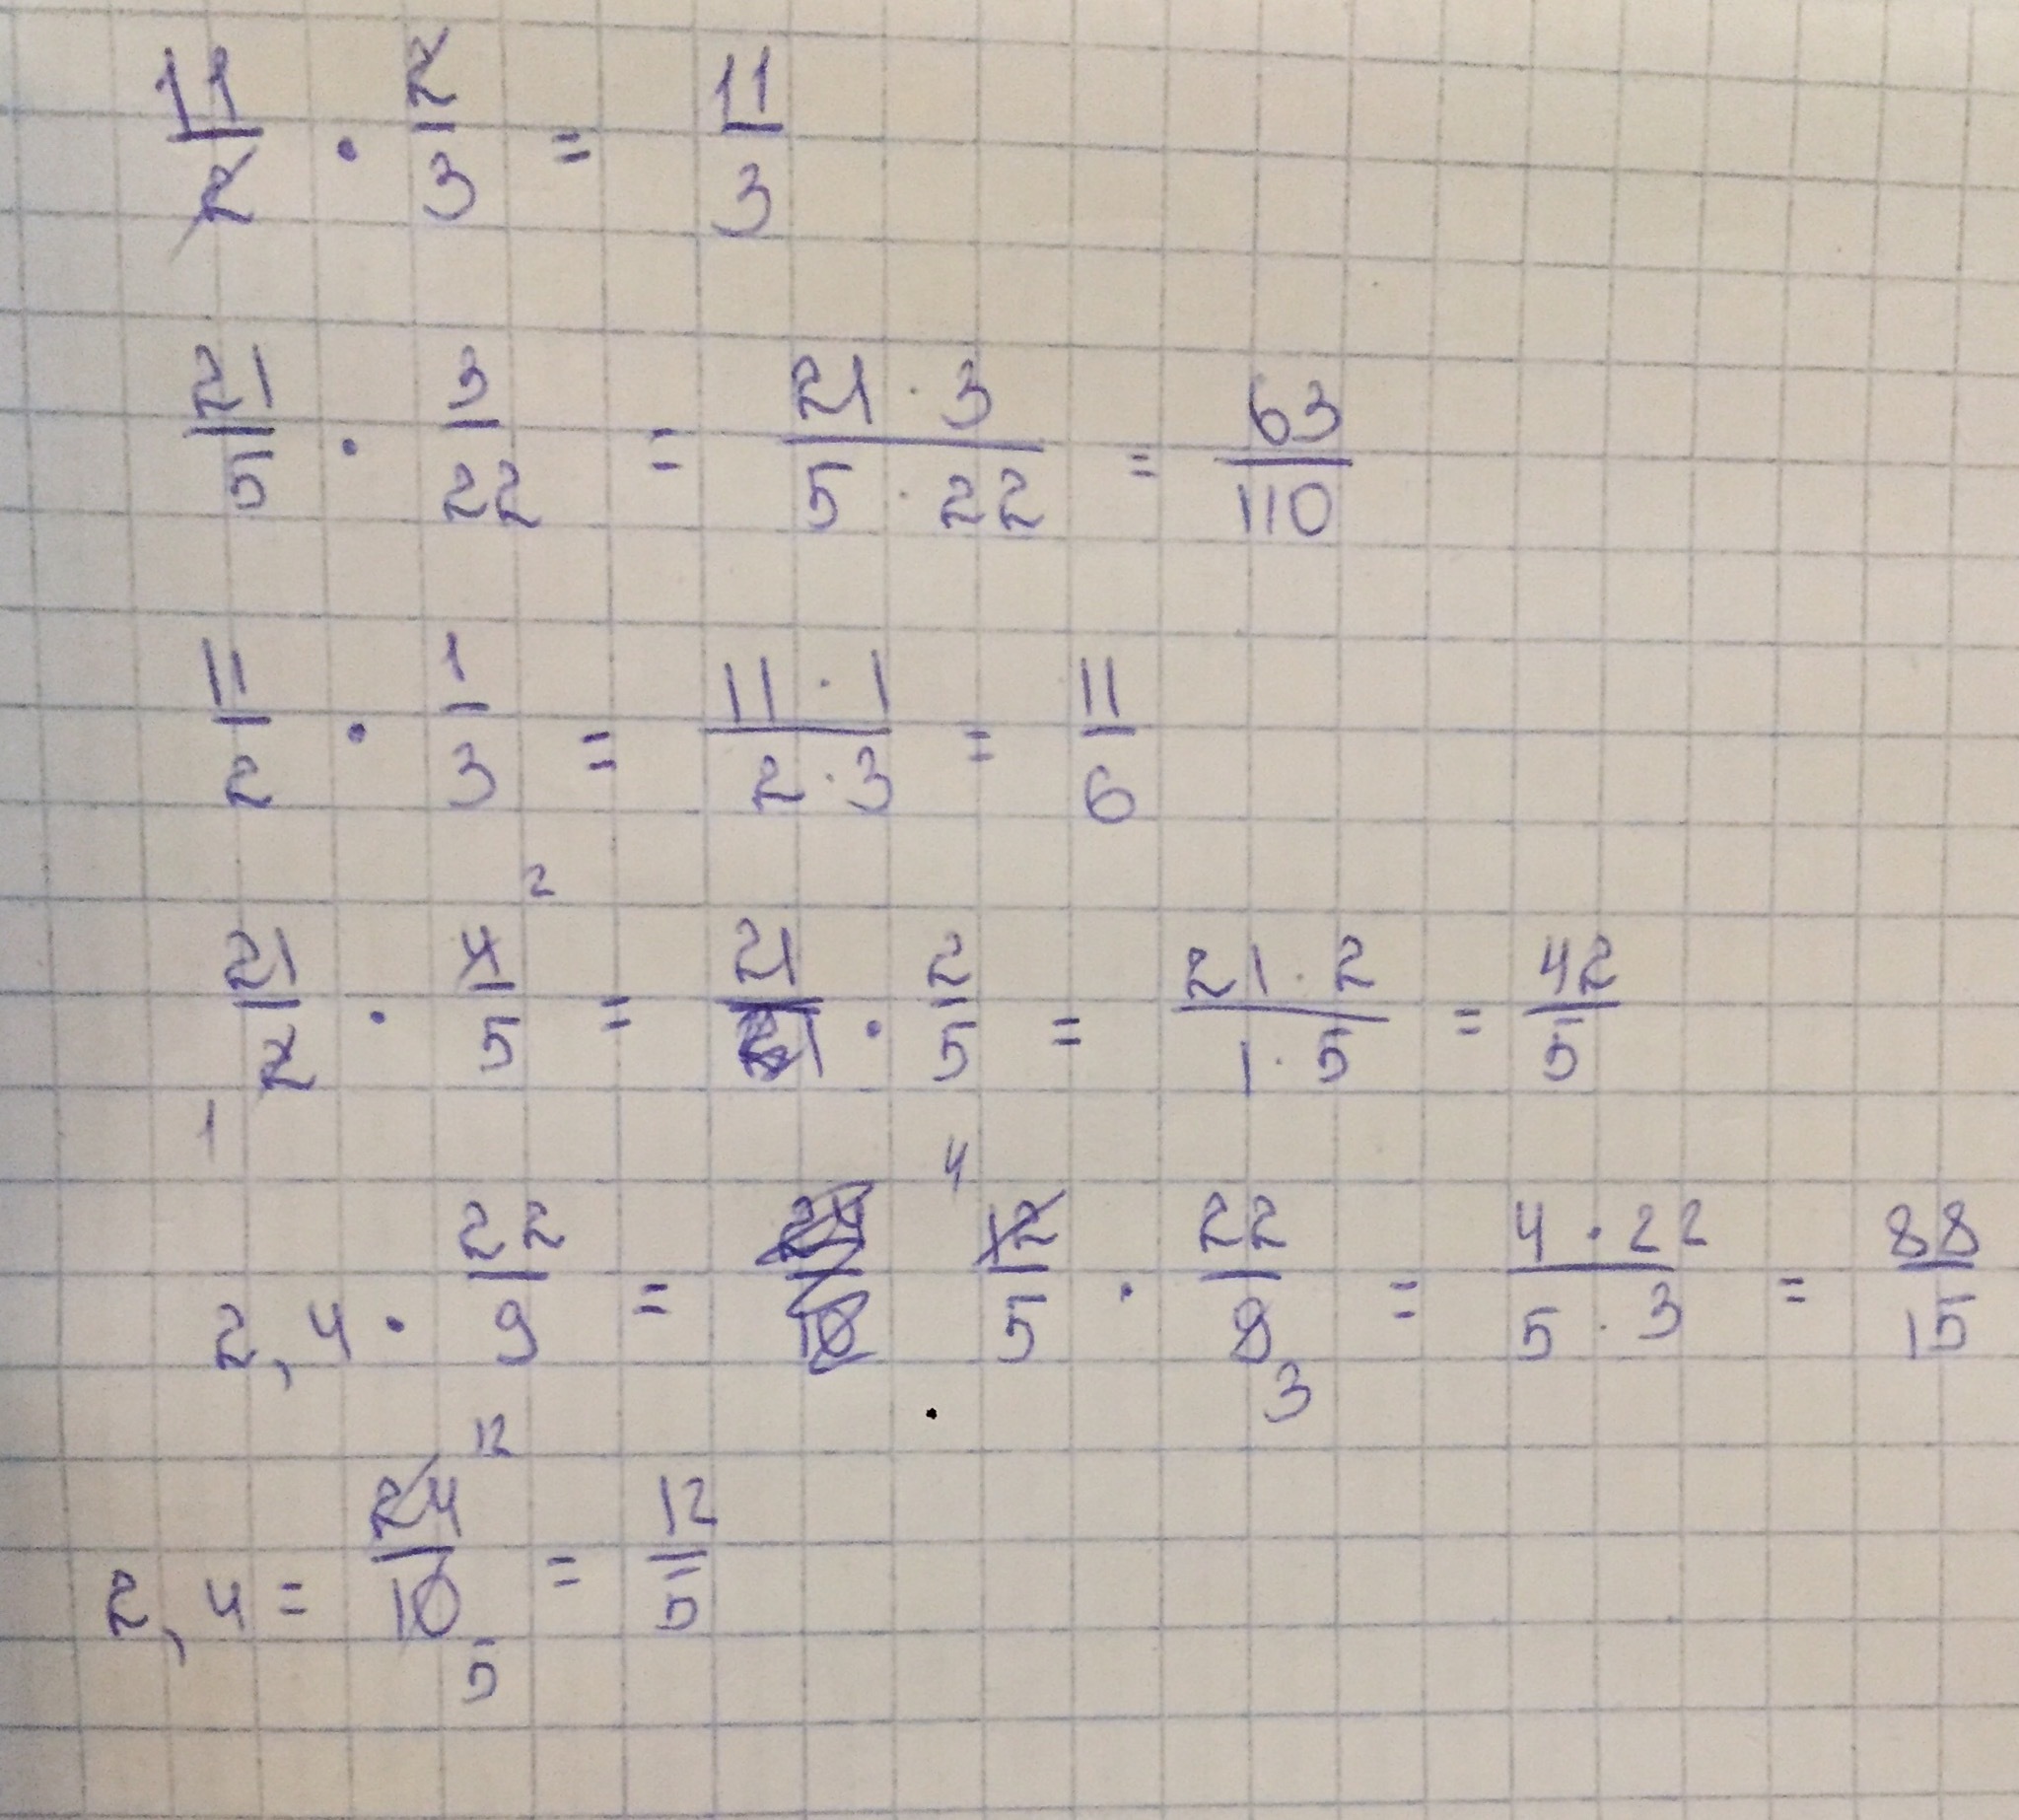 11/2 · 2/3 = 11/3
21/5 · 3/22 = 21 · 3/5 · 22 = 63/110
11/2 · 1/3 = 11 · 1/2 · 3 = 11/6
21/2 1 · 4/5 2 = 21/1 · 2/5 = 21 · 2/1 · 5 = 42/5
2,4 · 22/9 = 12/5 4 · 22/9 3 = 4 · 22/5 · 3 = 88/15
2,4 = 24/10 12 5 = 12/5